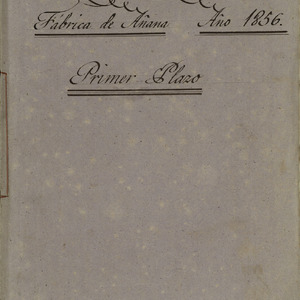 Fábrica de Añana Año 1856.
Primer Plazo